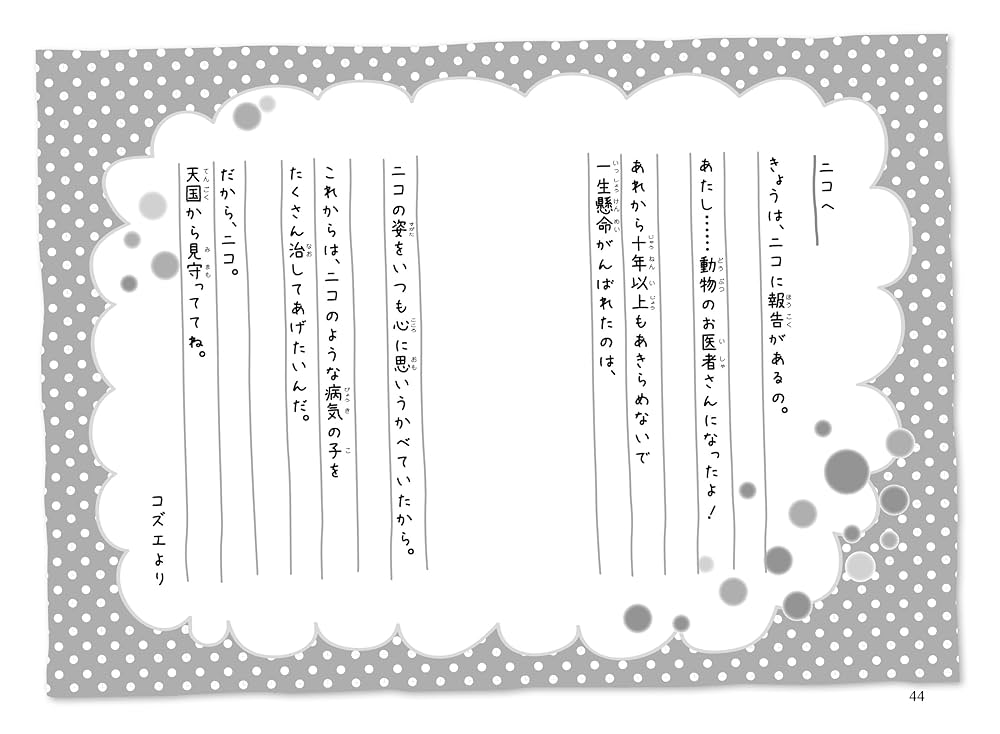 ニコへ
きょうは、ニコに報告があるの。
あたし……動物のお医者さんになったよ！
あれから十年以上もあきらめないで
一生懸命がんばれたのは、
ニコの姿をいつも心に思いうかべていたから。
これからは、ニコのような病気の子を
たくさん治してあげたいんだ。
だから、ニコ。
天国から見守っててね。
コズエより
44